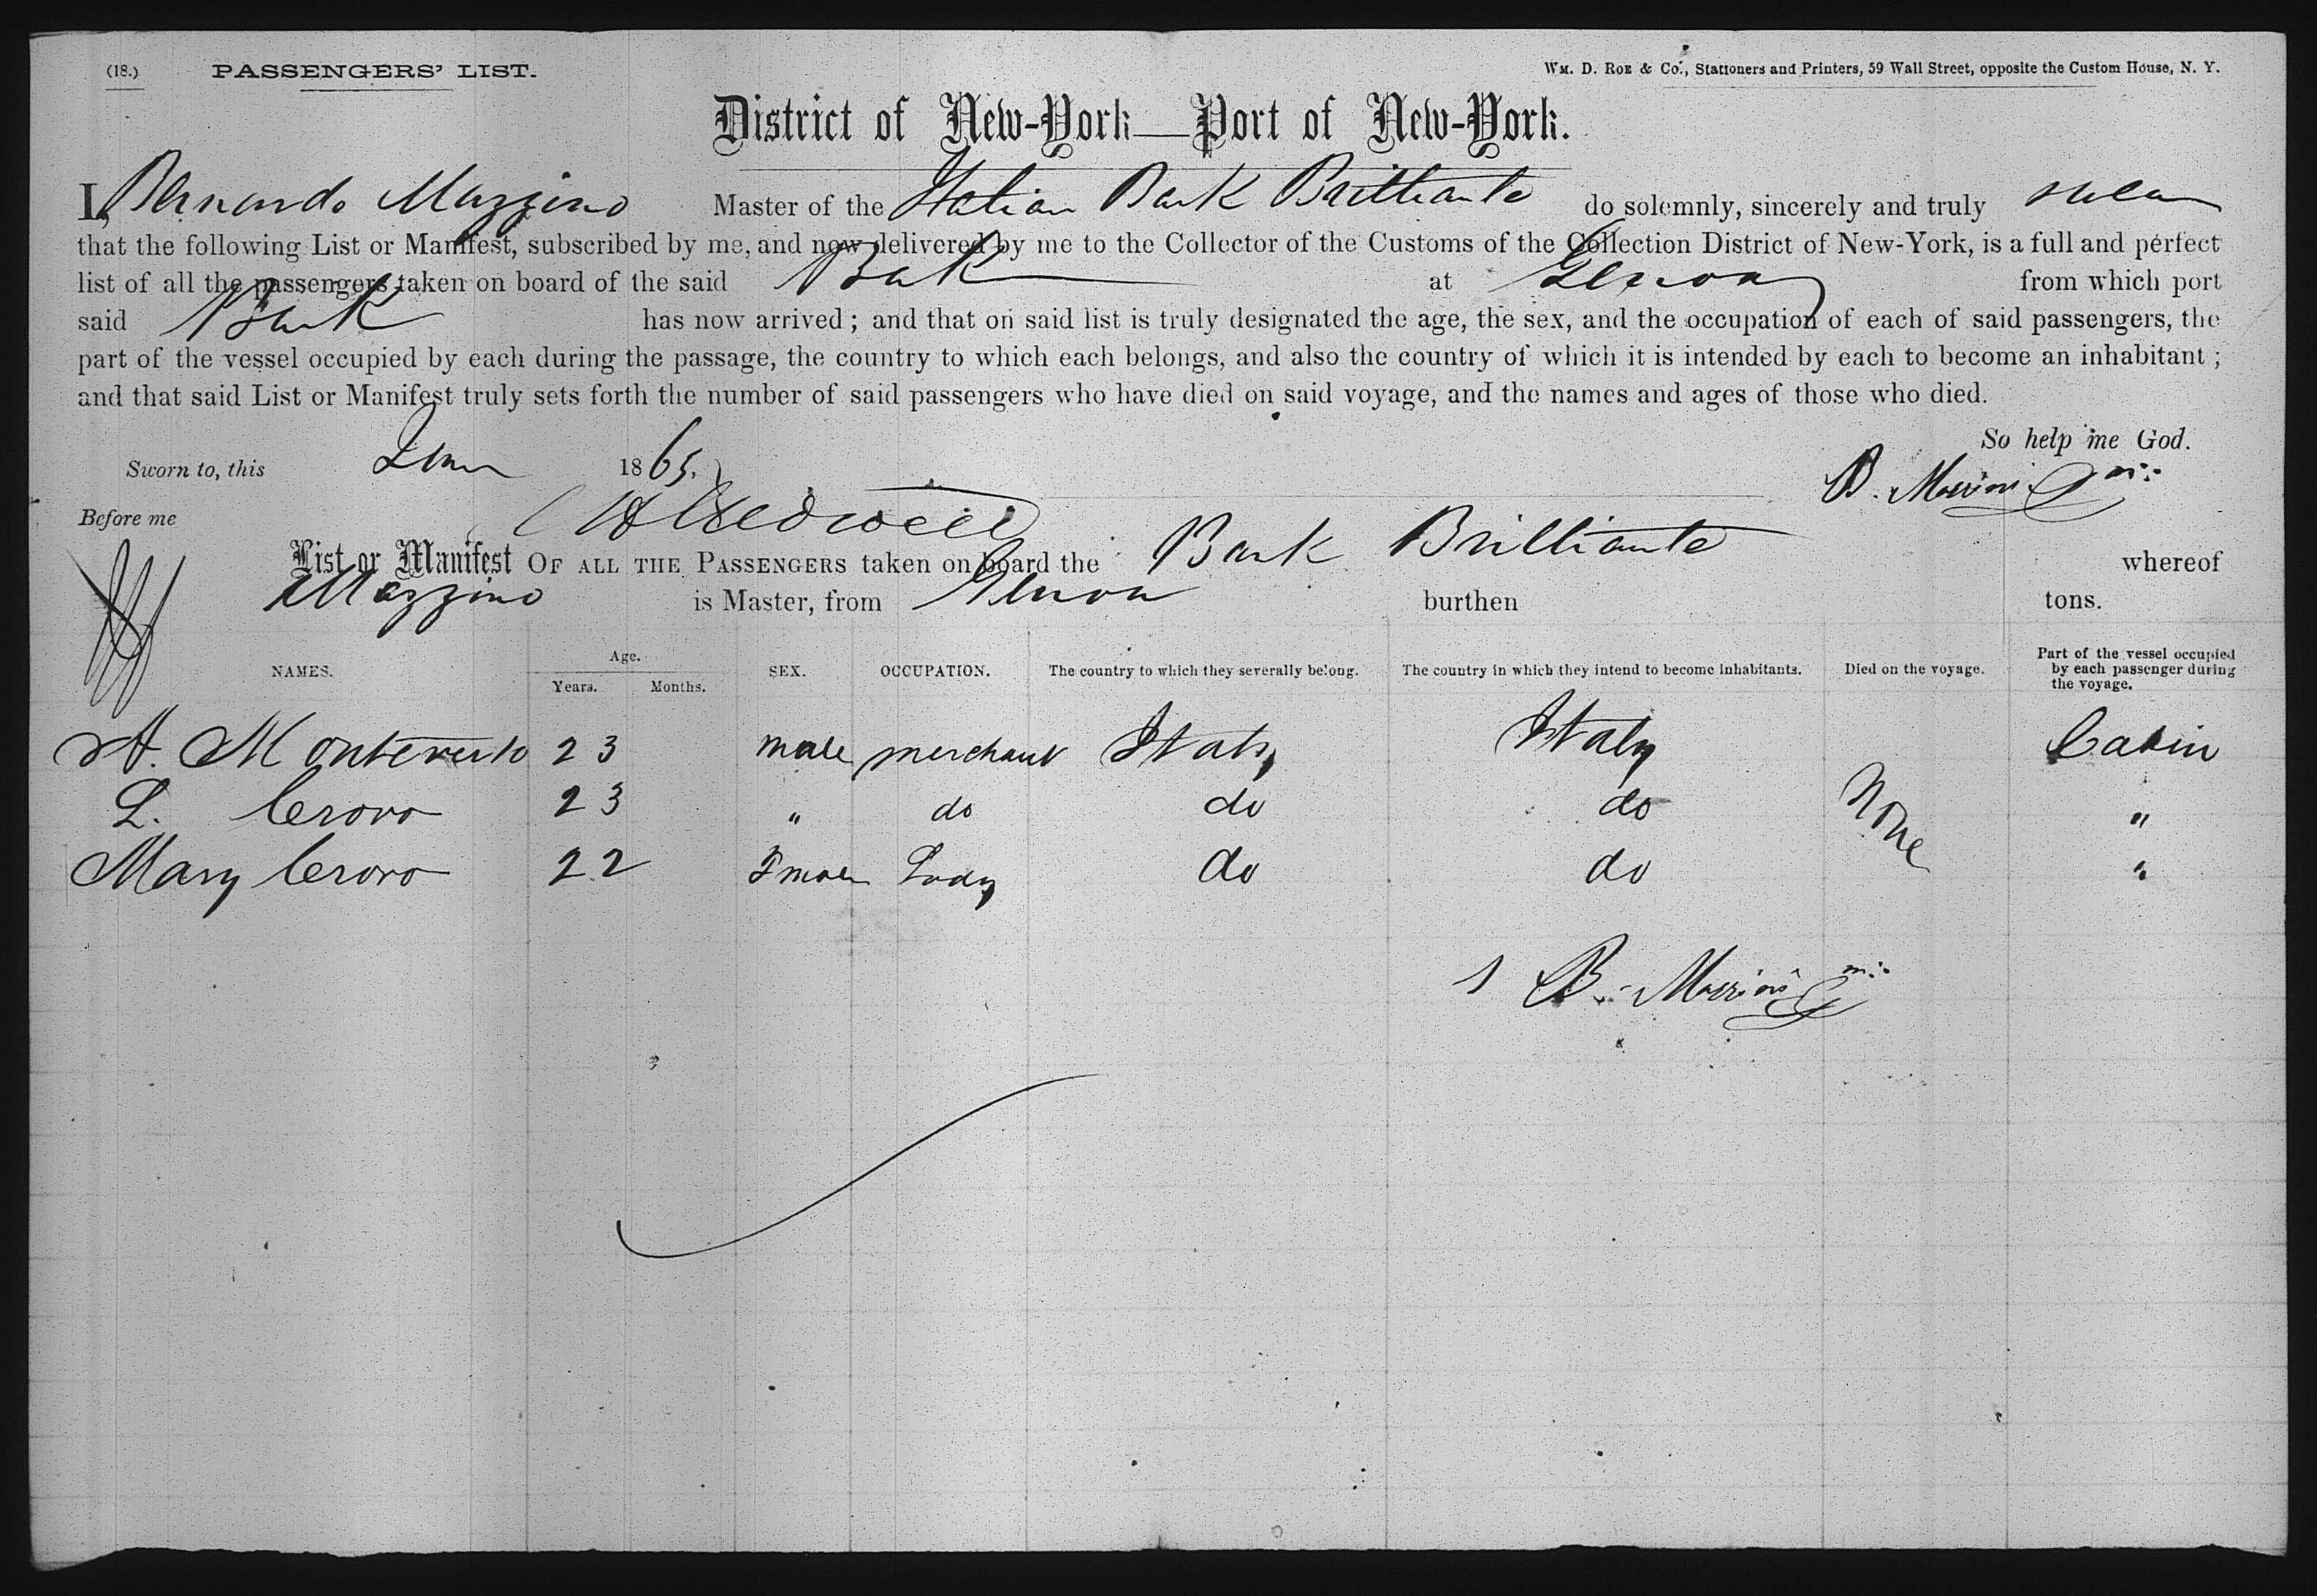 (18.) PASSENGERS' LIST. WM. D. ROE & Co., Stationers and Printers, 59 Wall Street, opposite the Custom House, N. Y.
District of New-York—Port of New-York.
I, Bernardo Mazzino Master of the Italian Bark Brilliante do solemnly, sincerely and truly swear
that the following List or Manifest, subscribed by me, and now delivered by me to the Collector of the Customs of the Collection District of New-York, is a full and perfect
list of all the passengers taken on board of the said Bark at Genoa from which port
said Bark has now arrived; and that on said list is truly designated the age, the sex, and the occupation of each of said passengers, the
part of the vessel occupied by each during the passage, the country to which each belongs, and also the country of which it is intended by each to become an inhabitant;
and that said List or Manifest truly sets forth the number of said passengers who have died on said voyage, and the names and ages of those who died.
So help me God.
Sworn to, this 1865.
B.
Before me
List or Manifest OF ALL THE PASSENGERS taken on board the Bark Brilliante whereof
Mazzino is Master, from Genoa burthen tons.
NAMES. Age. Years. Months. SEX. OCCUPATION. The country to which they severally belong. The country in which they intend to become inhabitants. Died on the voyage. Part of the vessel occupied by each passenger during the voyage.
A. 23 male merchant Italy Italy Cabin
L. Cerovo 23 " do do do None "
Mary Cerovo 22 Lady do do "
B.